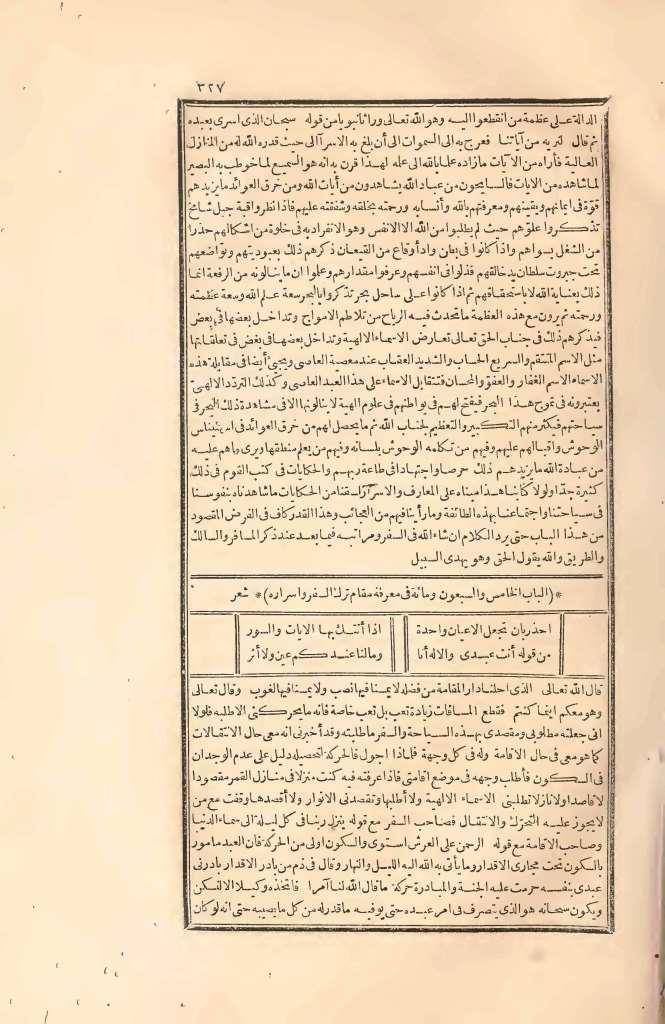 ٣٢٧
الدالة على عظمة من انقطعوا اليه وهو الله تعالى وراثا نبويا من قوله سبحان الذى اسرى بعبده
ثم قال لنريه من آياتنا فعرج به الى السموات الى أن بلغ به الاسرآ الى حيث قدره الله له من المنازل
العالية فأراه من الآيات مازاده علما بالله الى علمه لهذا قرن به انه هو السميع لما خوطب به البصير
لما شاهده من الايات فالسايحون من عباد الله يشاهدون من أيات الله ومن خرق العوائد ما يزيدهم
قوّة فى ايمانهم ويقينهم ومعرفتهم بالله وأنسابه ورحمته بخلقه وشفقته عليهم فاذا نظروا قبة جبل شامخ
تذكروا علوّهم حيث لم يطلبوا من الله الا الانفس وهو الانفراد به فى خلوة من اشكالهم حذرا
من الشغل بسواهم واذا كانوا فى بطن واد أو قاع من القيعان ذكرهم ذلك بعبوديتهم وتواضعهم
تحت جبروت سلطان يد خالقهم فذلوا فى انفسهم وعرفوا مقدارهم وعلموا ان ما ينالونه من الرفعة انما
ذلك بعناية الله لا باستحقاقهم ثم اذا كانوا على ساحل بحر تذكروا بالبحر سعة علم الله وسعة عظمته
ورحمته ثم يرون مع هذه العظمة ما تحدث فيه الرياح من تلاطم الامواج وتداخل بعضها فى بعض
فيذكرهم ذلك فى جناب الحق تعالى تعارض الاسماء الالهية وتداخل بعضها فى بعض فى تعلقاتها
مثل الاسم المنتقم والسريع الحساب والشديد العقاب عند معصية العاصى ويجئ أيضا فى مقابلة هذه
الاسماء الاسم الغفار والعفوّ والمحسان فتتقابل الاسماء على هذا العبد العاصى وكذلك التردّد الالهىّ
يعتبرونه فى تموج هذا البحر فيفتح لهم فى بواطنهم فى علوم الهية لا ينالونها الا فى مشاهدة ذلك البحر فى
سياحتهم فيكثر منهم التكبير والتعظيم لجناب الله ثم ما يحصل لهم من خرق العوائد فى استيناس
الوحوش واقبالها عليهم وفيهم من تكلمه الوحوش بلسانه وفيهم من يعلم منطقها ويرى ما هم عليه
من عبادة الله ما يزيدهم ذلك حرصا واجتهادا فى طاعة ربهم والحكايات فى كتب القوم فى ذلك
كثيرة جدّا ولولا كتابنا هذا مبناه على المعارف والاسرآر لسقنا من الحكايات ما شاهدناه بنفوسنا
فى سياحتنا واجتماعنا بهذه الطائفة وما رأينا فيهم من العجائب وهذا القدر كاف فى الغرض المقصود
من هذا الباب حتى يرد الكلام ان شاء الله فى السفر ومراتبه فيما بعد عند ذكر المسافر والسالك
والطريق والله يقول الحق وهو يهدى السبيل
* (الباب الخامس والسبعون ومائة فى معرفة مقام ترك السفر واسراره) * شعر
احذر بان تجعل الاعيان واحدة اذا أتتك بها الايات والسور
من قوله أنت عبدى والاله أنا ومالنا عندكم عين ولا أثر
قال الله تعالى الذى احلنا دار المقامة من فضله لا يمسنا فيها نصب ولا يمسنا فيها لغوب وقال تعالى
وهو معكم اينما كنتم فقطع المسافات زيادة تعب بل تعب خاصة فانه ما يحركنى الا طلبه فلولا
انى جعلته مطلوبى ومقصدى بهذه السياحة والسفر ما طلبته وقد أخبرنى انه معى حال الانتقالات
كما هو معى فى حال الاقامة وله فى كل وجهة فلماذا اجول فالحركة لتحصيله دليل على عدم الوجدان
فى السكون فأطلب وجهه فى موضع اقامتى فاذا عرفته فيه كنت منزلا فى منازل القمر مقصودا
لا قاصدا ولا نازلا تطلبنى الاسماء الالهية ولا أطلبها وتقصدنى الانوار ولا أقصدها وقفت مع من
لا يجوز عليه التحرّك والانتقال فصاحب السفر مع قوله ينزل ربنا فى كل ليلة الى سماء الدنيا
وصاحب الاقامة مع قوله الرحمن على العرش استوى والسكون اولى من الحركة فان العبد مامور
بالسكون تحت مجارى الاقدار وما يأتى به الله اليه الليل والنهار وقال فى ذم من بادر الاقدار بادرنى
عبدى بنفسه حرمت عليه الجنة والمبادرة حركة ما قال الله لنا آمرا فاتخذه وكيلا الا لتسكن
ويكون سبحانه هو الذى يتصرف فى امر عبده حتى يوفيه ما قدر له من كل ما يصيبه حتى انه لو كان